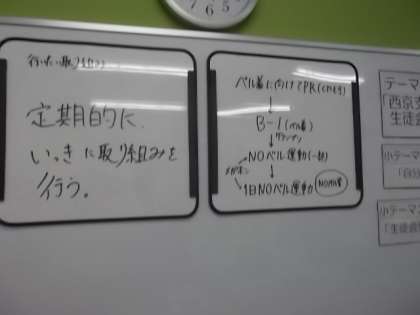 行いたい取り組み
定期的に
いっきに取り組みを
行う。
ベル着に向けてPR(
B-1(ベル着)
グランプリ
NOベル運動(一部)
1日NOベル運動
テーマ
「西京
生徒会
小テーマ
「自分
小テーマ
「生徒会
7 6 5